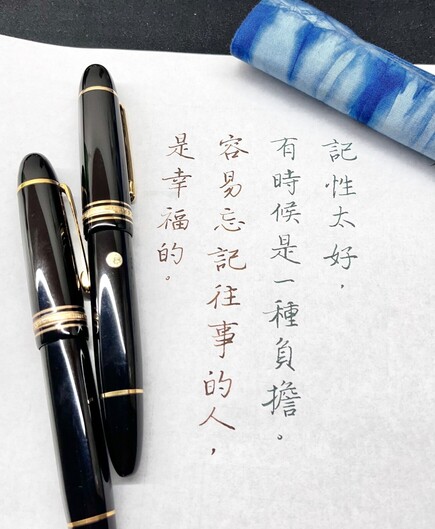 記性太好，
有時候是一種負擔。
容易忘記往事的人，
是幸福的。